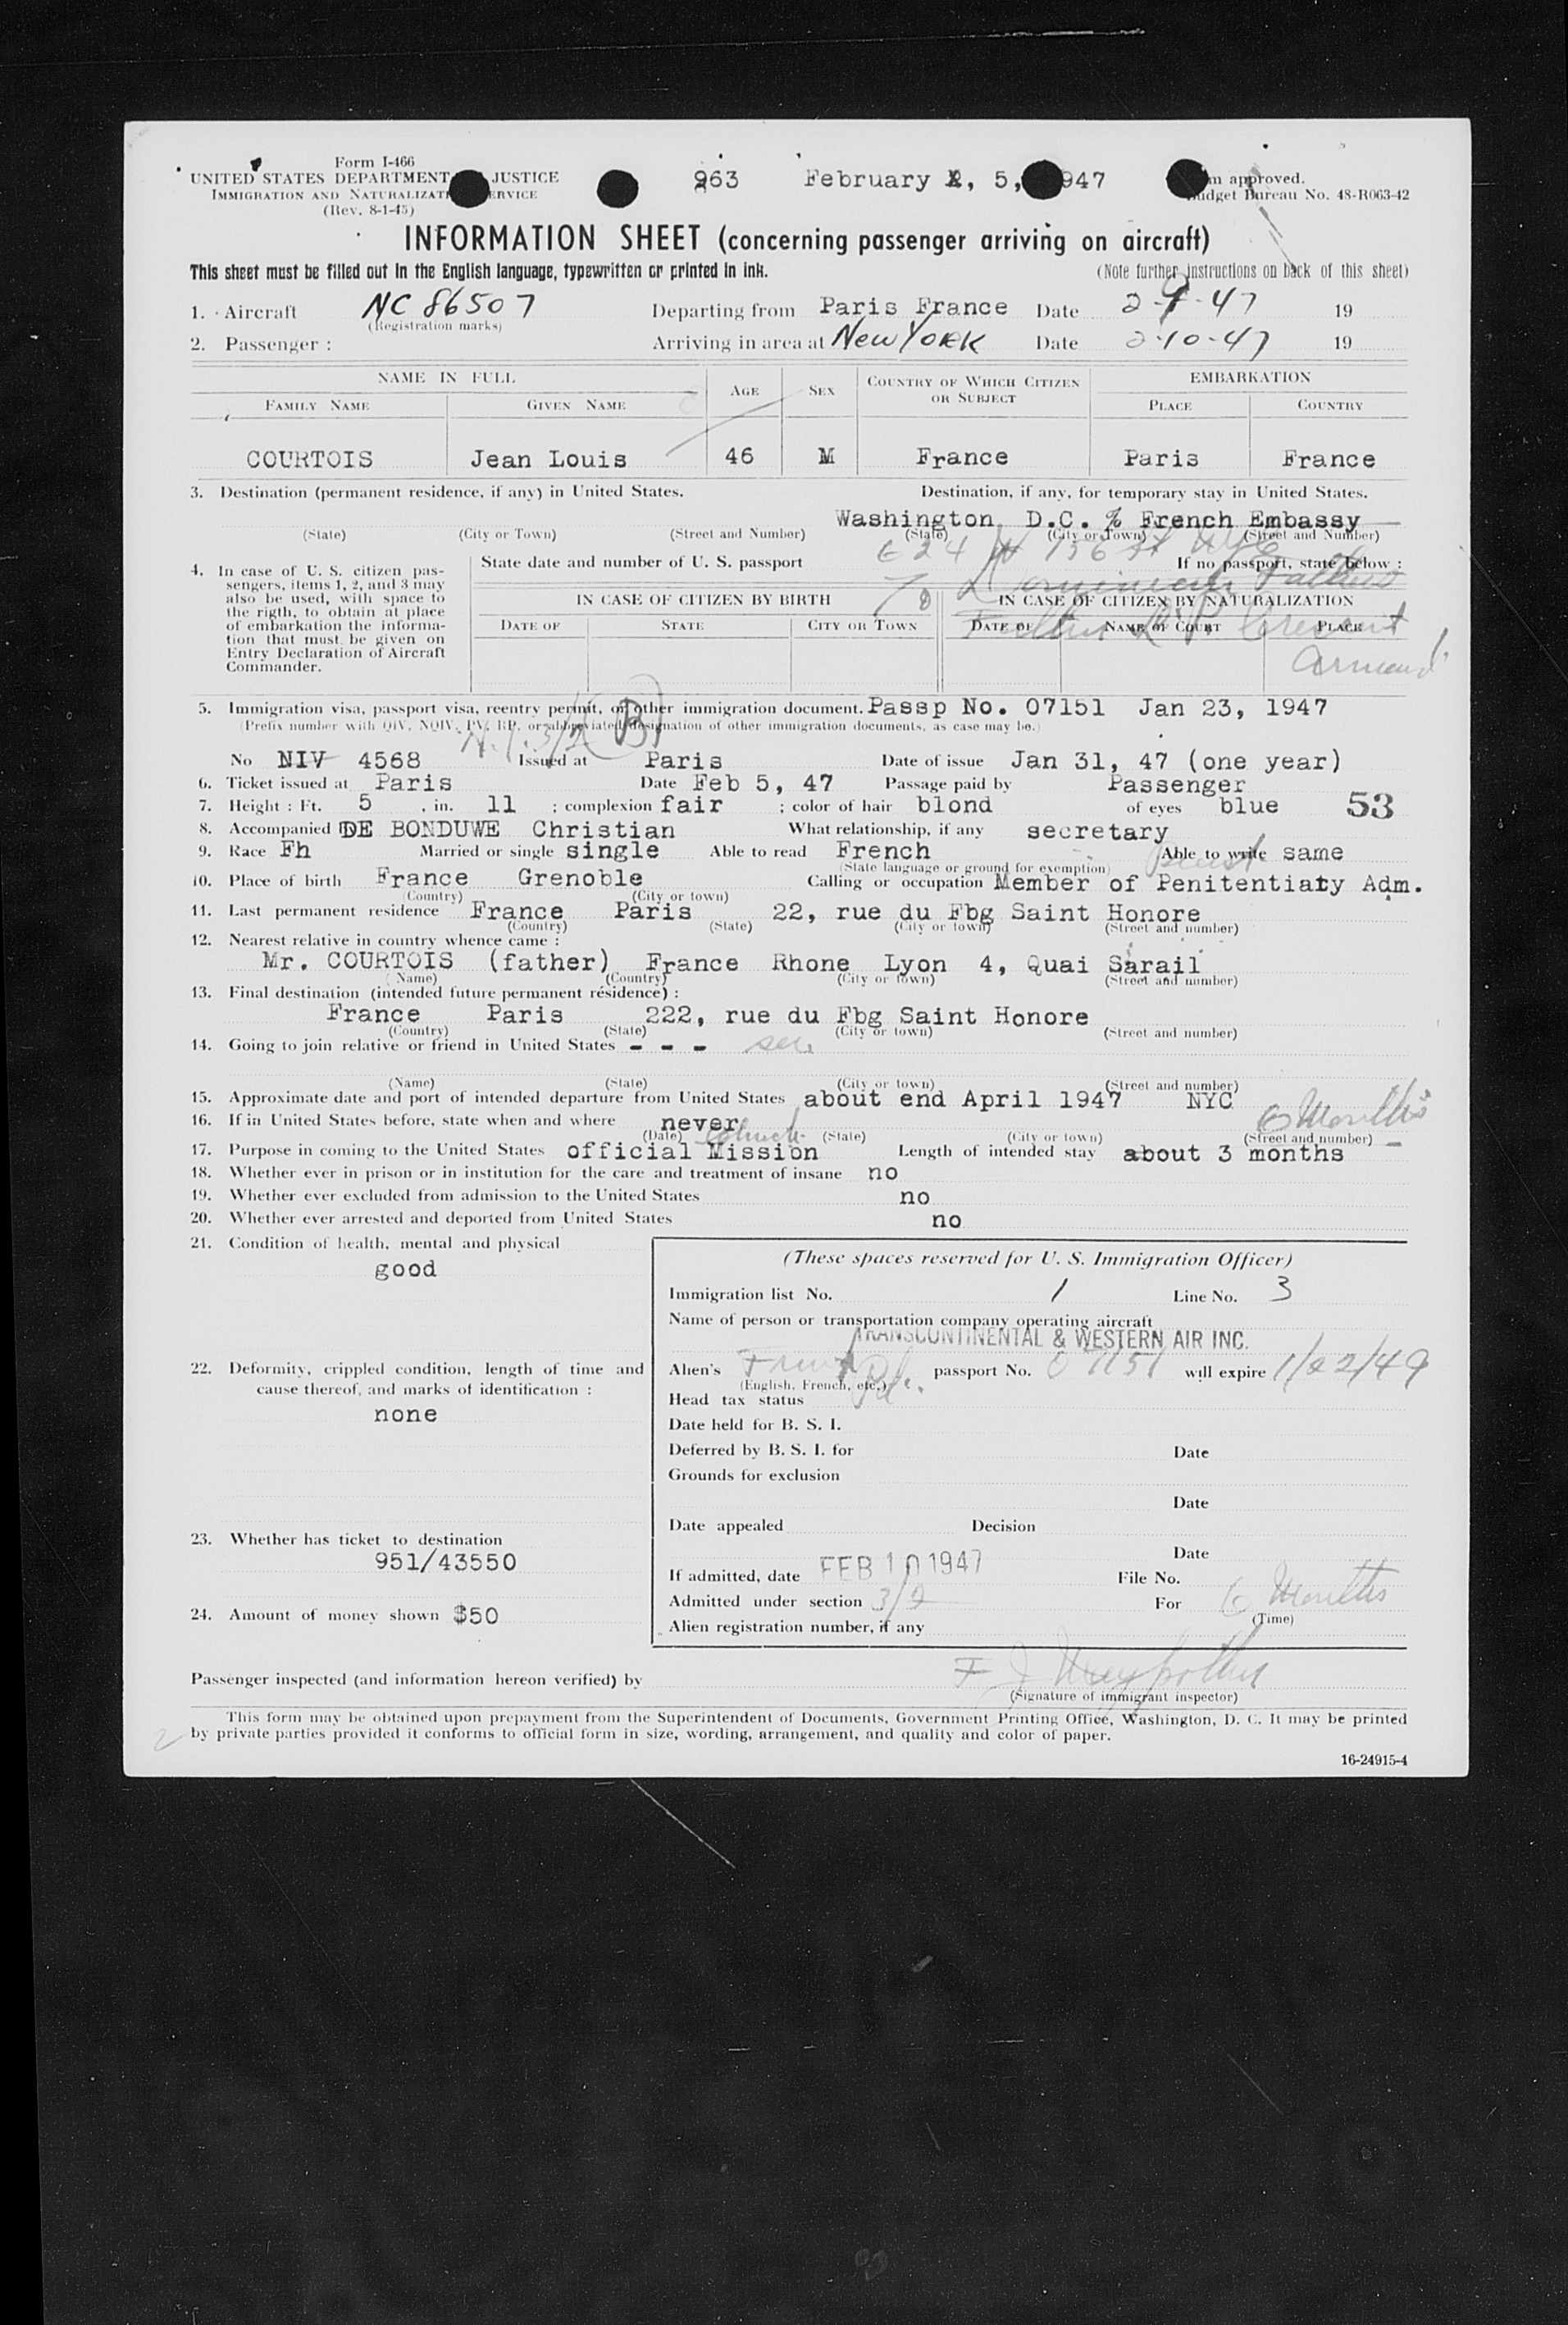 Form I-466
UNITED STATES DEPARTMENT JUSTICE
IMMIGRATION AND NATURALIZATI ERVICE
(Rev. 8-1-45)
963 February 2, 5, 947
m approved.
udget Bureau No. 48-R063-42
INFORMATION SHEET (concerning passenger arriving on aircraft)
This sheet must be filled out in the English language, typewritten or printed in ink. (Note further instructions on back of this sheet)
1. Aircraft NC 86507 Departing from Paris France Date 2-9-47 19
(Registration marks)
2. Passenger : Arriving in area at New York Date 2-10-47 19
NAME IN FULL AGE SEX COUNTRY OF WHICH CITIZEN OR SUBJECT EMBARKATION
FAMILY NAME GIVEN NAME PLACE COUNTRY
COURTOIS Jean Louis 46 M France Paris France
3. Destination (permanent residence, if any) in United States. Destination, if any, for temporary stay in United States.
Washington D.C. % French Embassy
(State) (City or Town) (Street and Number) (State) (City or Town) (Street and Number)
624 W 156 St NYC
4. In case of U. S. citizen passengers, items 1, 2, and 3 may also be used, with space to the rigth, to obtain at place of embarkation the information that must be given on Entry Declaration of Aircraft Commander.
State date and number of U. S. passport If no passport, state below :
Dominican Fathers
IN CASE OF CITIZEN BY BIRTH IN CASE OF CITIZEN BY NATURALIZATION
DATE OF STATE CITY OR TOWN DATE OF NAME OF COURT PLACE
Armand
5. Immigration visa, passport visa, reentry permit, or other immigration document. Passp No. 07151 Jan 23, 1947
(Prefix number with QIV, NQIV, PV, RP, or abbreviated designation of other immigration documents, as case may be.)
3/2 (B)
No NIV 4568 Issued at Paris Date of issue Jan 31, 47 (one year)
6. Ticket issued at Paris Date Feb 5, 47 Passage paid by Passenger
7. Height : Ft. 5 , in. 11 ; complexion fair ; color of hair blond of eyes blue 53
8. Accompanied DE BONDUWE Christian What relationship, if any secretary
9. Race Fh Married or single single Able to read French Able to write same
(State language or ground for exemption) Priest
10. Place of birth France Grenoble Calling or occupation Member of Penitentiary Adm.
(Country) (City or town)
11. Last permanent residence France Paris 22, rue du Fbg Saint Honore
(Country) (State) (City or town) (Street and number)
12. Nearest relative in country whence came :
Mr. COURTOIS (father) France Rhone Lyon 4, Quai Sarail
(Name) (Country) (City or town) (Street and number)
13. Final destination (intended future permanent résidence) :
France Paris 222, rue du Fbg Saint Honore
(Country) (State) (City or town) (Street and number)
14. Going to join relative or friend in United States - - -
(Name) (State) (City or town) (Street and number)
15. Approximate date and port of intended departure from United States about end April 1947 NYC
6 Months
16. If in United States before, state when and where never
(Date) (State) (City or town) (Street and number)
17. Purpose in coming to the United States official Mission Length of intended stay about 3 months
18. Whether ever in prison or in institution for the care and treatment of insane no
19. Whether ever excluded from admission to the United States no
20. Whether ever arrested and deported from United States no
21. Condition of health, mental and physical
good
22. Deformity, crippled condition, length of time and cause thereof, and marks of identification :
none
23. Whether has ticket to destination
951/43550
24. Amount of money shown $50
(These spaces reserved for U. S. Immigration Officer)
Immigration list No. 1 Line No. 3
Name of person or transportation company operating aircraft
TRANSCONTINENTAL & WESTERN AIR INC.
Alien's French passport No. 07151 will expire 1/22/49
(English, French, etc.)
Head tax status Pd.
Date held for B. S. I.
Deferred by B. S. I. for Date
Grounds for exclusion
Date
Date appealed Decision
Date
If admitted, date FEB 10 1947 File No.
Admitted under section 3/2 For 6 Months
(Time)
Alien registration number, if any
Passenger inspected (and information hereon verified) by F J
(Signature of immigrant inspector)
This form may be obtained upon prepayment from the Superintendent of Documents, Government Printing Office, Washington, D. C. It may be printed
by private parties provided it conforms to official form in size, wording, arrangement, and quality and color of paper.
16-24915-4